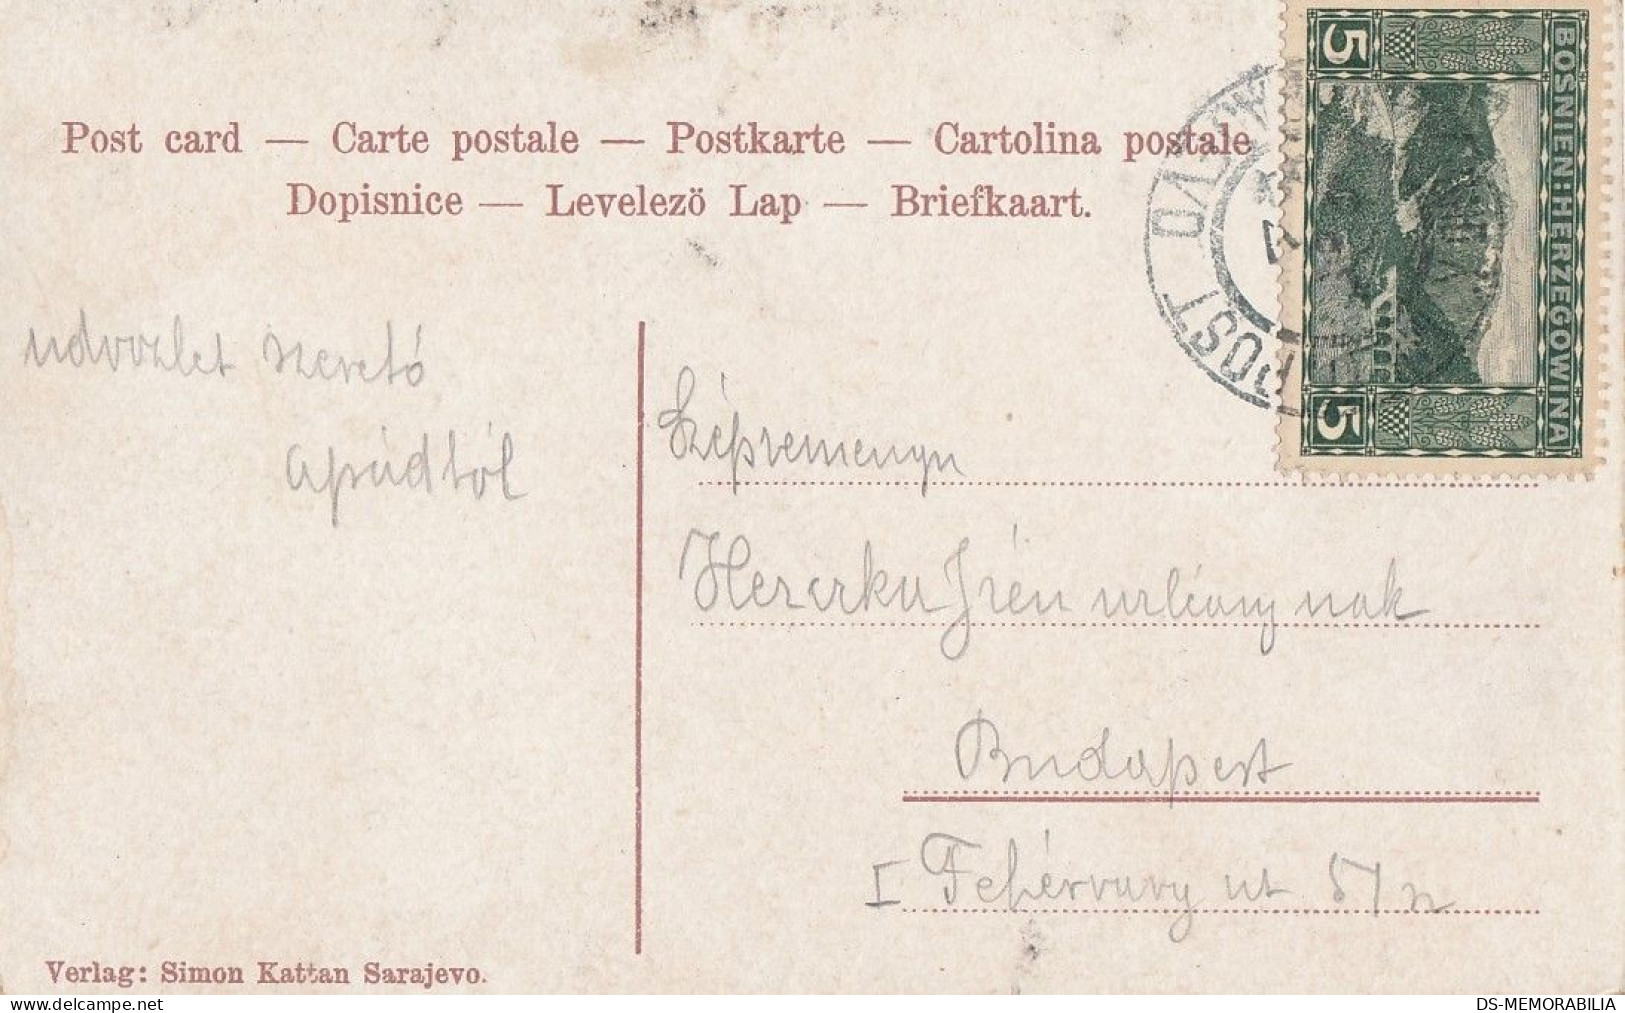 Post card — Carte postale — Postkarte — Cartolina postale
Dopisnice — Levelezö Lap — Briefkaart.
5
BOSNIEN HERZEGOWINA
5
POST
udvozlet szerető
apádtól
Szépremenyű
Irén urleány nak
Budapest
I Fehérvary ut 51
Verlag: Simon Kattan Sarajevo.
DS-MEMORABILIA